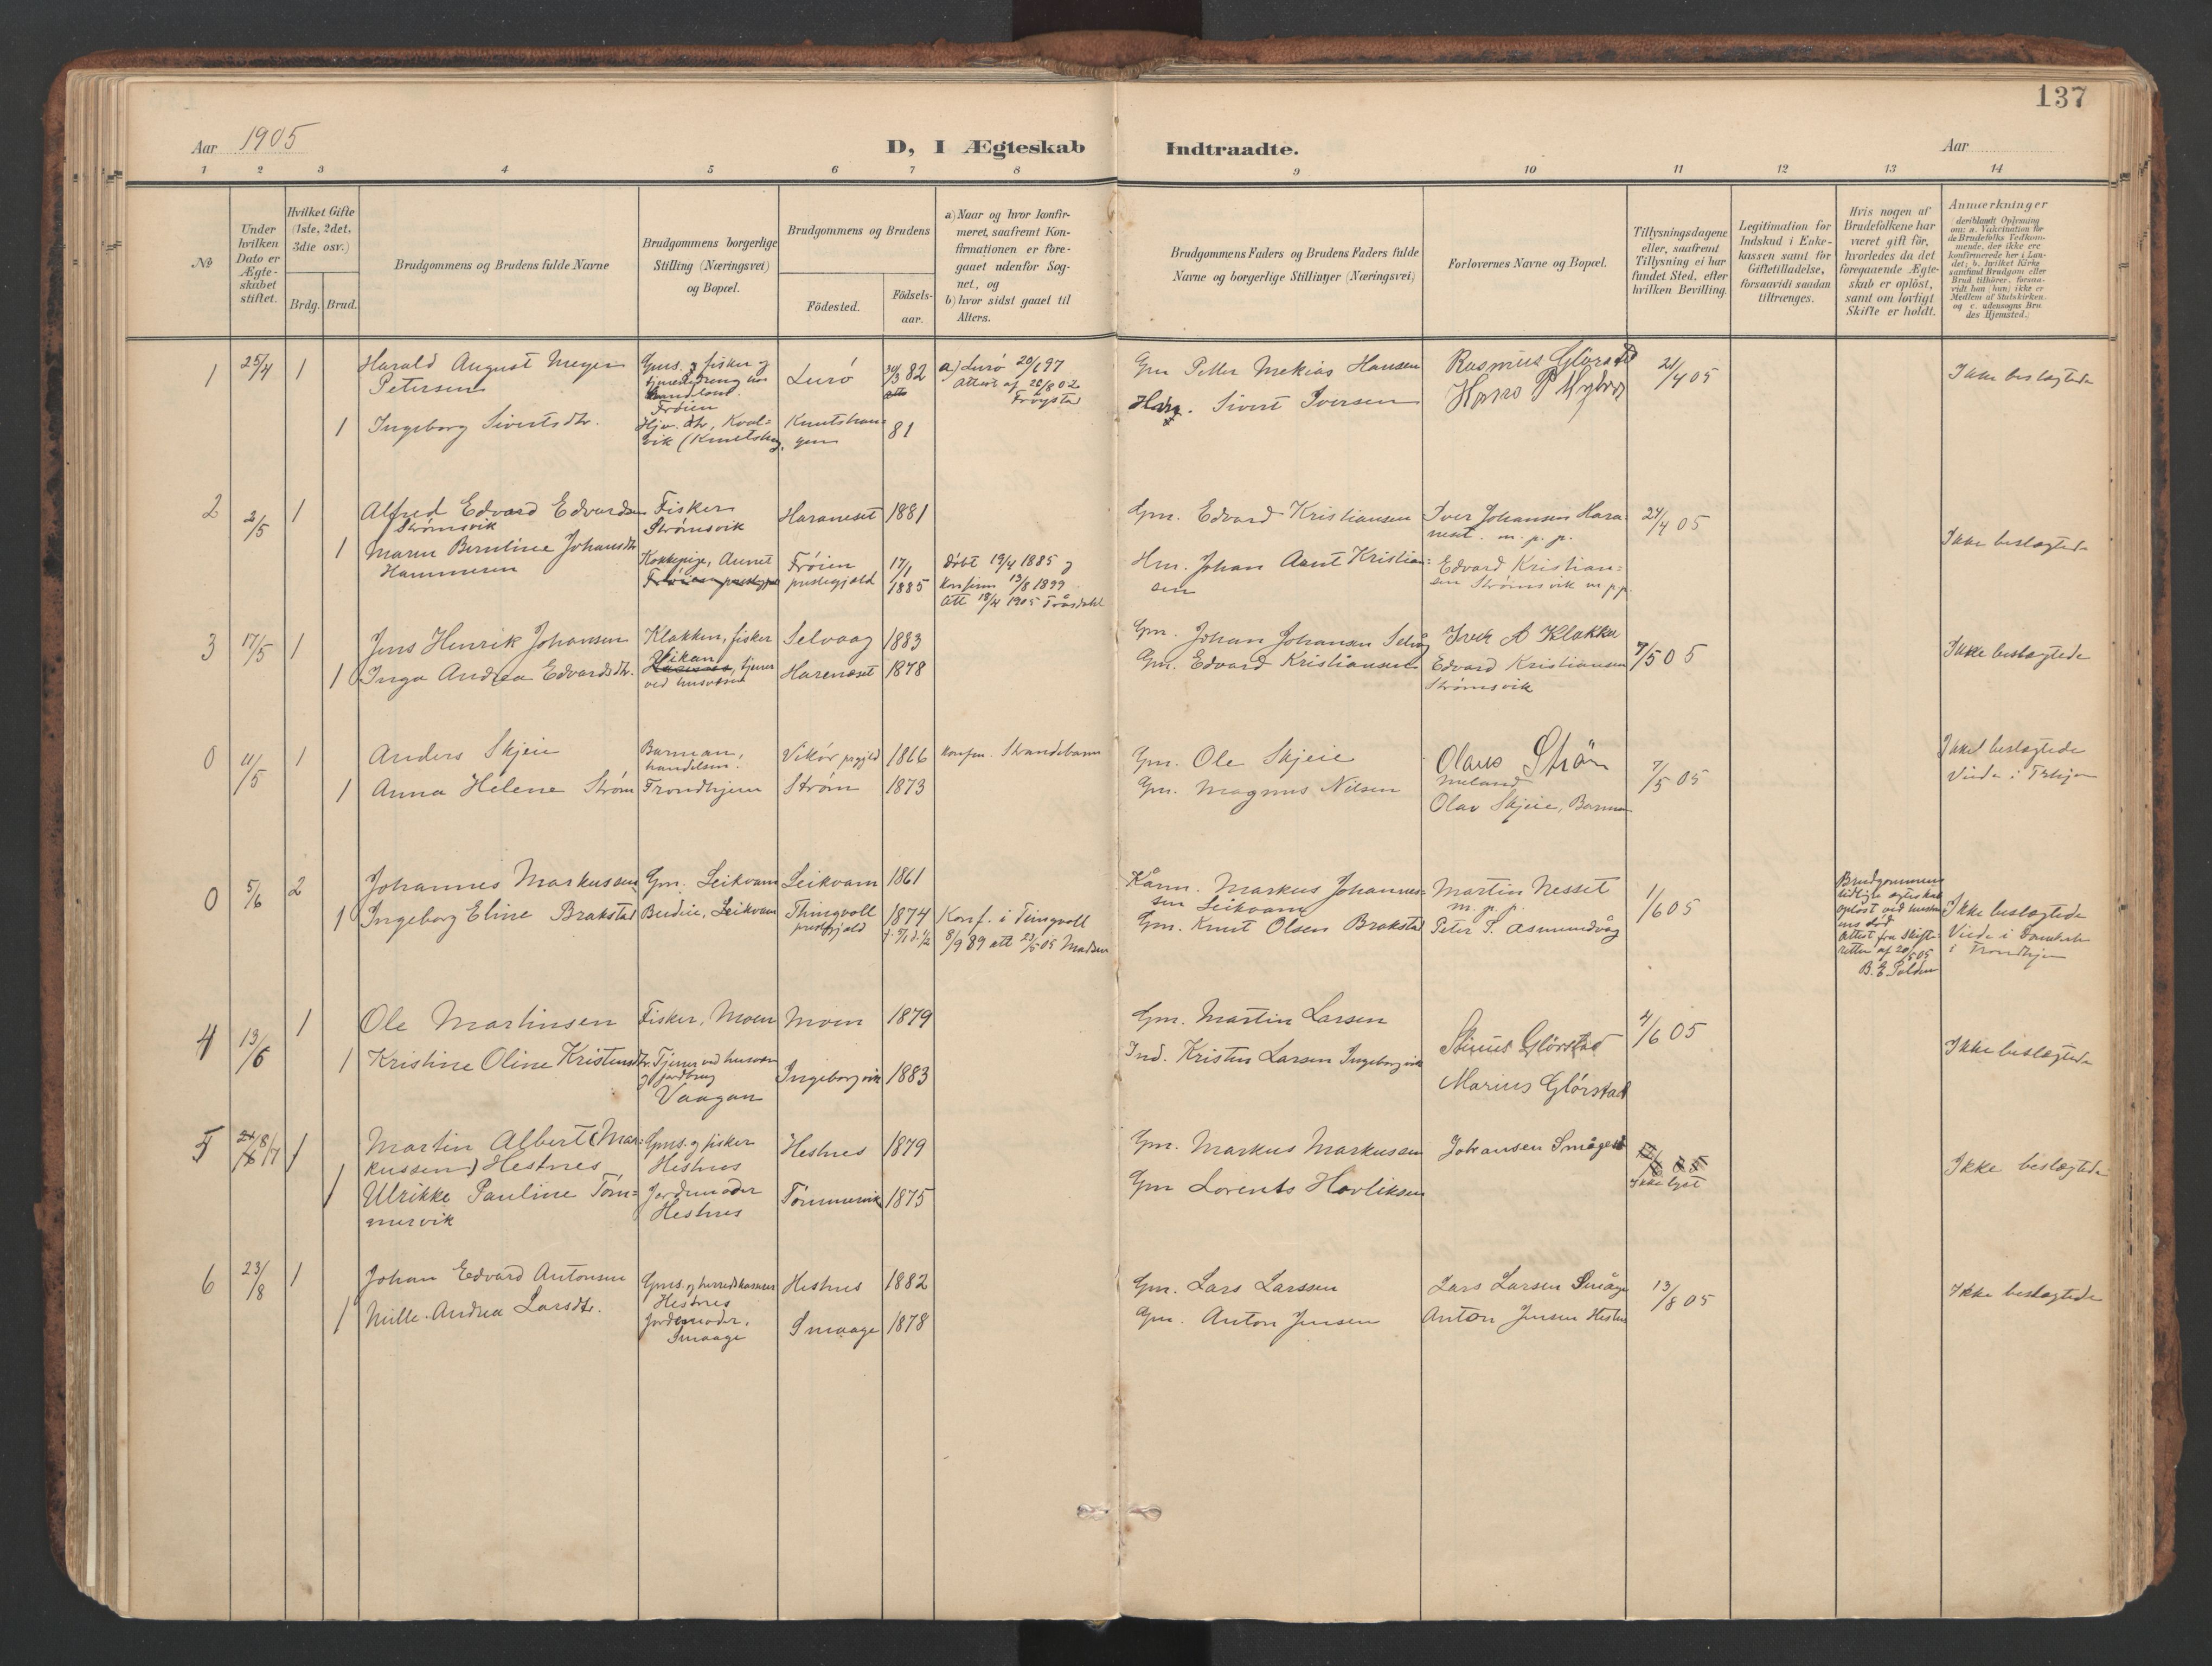 137
Aar 1905
D, I Ægteskab Indtraadte.
Aar
1 2 3 4 5 6 7 8 9 10 11 12 13 14
№
Under hvilken Dato er Ægteskabet stiftet.
Hvilket Gifte (1ste, 2det, 3die osv.)
Brdg. Brud.
Brudgommens og Brudens fulde Navne
Brudgommens borgerlige Stilling (Næringsvei) og Bopæl.
Brudgommens og Brudens
Födested.
Födselsaar.
a) Naar og hvor konfirmeret, saafremt Konfirmationen er foregaaet udenfor Sognet, og
b) hvor sidst gaaet til Alters.
Brudgommens Faders og Brudens Faders fulde Navne og borgerlige Stillinger (Næringsvei)
Forlovernes Navne og Bopæl.
Tillysningsdagene eller, saafremt Tillysning ei har fundet Sted, efter hvilken Bevilling.
Legitimation for Indskud i Enkekassen samt for Giftetilladelse, forsaavidt saadan tiltrænges.
Hvis nogen af Brudefolkene har været gift för, hvorledes da det foregaaende Ægteskab er oplöst, samt om lovligt Skifte er holdt.
Anmærkninger
(deriblandt Oplysning om: a. Vakcination for de Brudefolks Vedkommende, der ikke ere konfirmerede her i Landet; b. hvilket Kirkesamfund Brudgom eller Brud tilhörer, forsaavidt han (hun) ikke er Medlem af Statskirken, og c. udensogns Brudes Hjemsted.)
1 25/4 1 Harald August Meyer Petersen
Gms. og fisker og tjenestedreng hos
Frøien
Lurö 30/3 82
a) Lurö 20/6 97
Attest af 20/8 02
Gm Petter Mekias Hansen
Rasmus Glörstad
Hans P Myhre
21/4 05
Ikke beslægtede
1 Ingeborg Sivertsdtr.
Kvalvik (Knutshaug.
Knutshaugen 81
Sivert Iversen
2 2/5 1 Alfred Edvard Edvardsen Strömsvik
Fisker Strömsvik
Haraneset 1881
Gm. Edvard Kristiansen
Iver Johansen Haraneset. m. p. p.
24/4 05
Ikke beslægtede
1 Maren Berntine Johansdtr Hammeren
Kokkepige,
Frøien prestegjæld 17/1 1885
döbt 19/4 1885 og konfirm 13/8 1899
Att 18/4 1905
Hm. Johan Arnt Kristiansen
Edvard Kristiansen Strömsvik m.p.p.
3 17/5 1 Jens Henrik Johansen
Klakken, fisker
Selvaag 1883
Gm. Johan Johansen Selvåg
Iver A Klakken
7/5 05
Ikke beslægtede
1 Inga Andrea Edvardsdtr.
Vikan, tjener ved husvæsen
Hareneset 1878
Gm. Edvard Kristiansen
Edvard Kristiansen Strömsvik
0 11/5 1 Anders Skjeie
Barman, handelsm.
Vikör prgjld 1866
konfm. Strandebarm
Gm. Ole Skjeie
Olaus Ström
7/5 05
Ikke beslægtede
Viede i Trhjem
1 Anna Helene Ström
Trondhjem
Ström 1873
Gm. Magnus Nilsen
Olav Skjeie, Barman
0 5/6 2 Johannes Markussen
Gm. Leikvam
Leikvam 1861
Kårm. Markus Johannessen Leikvam
Martin Nesset m. p. p.
1/6 05
Brudgommens tidligere ægteskab oplöst ved hustruens död
Attest fra Skifteretten af 20/5 05
Ikke beslægtede
Viede i Domkirken i Trondhjem
1 Ingeborg Eline Brakstad
Budeie, Leikvam
Thingvoll prestegjæld 1874
Konf. i Tingvoll 8/9 89 att 23/5 05 Madsen
Gm. Knut Olsen Brakstad
Peter S. Asmundvåg
4 13/6 1 Ole Martinsen
Fisker, Moen
Moen 1879
Gm. Martin Larsen
Glörstad
4/6 05
Ikke beslægtede
1 Kristine Oline Kristensdtr.
Tjener ved husvæsen og jordbrug
Vaagan
Ingeborgvik 1883
Ind. Kristen Larsen Ingeborgvik
Marius Glörstad
5 8/7 1 Martin Albert (Markussen) Hestnes
Gms. og fisker Hestnes
Hestnes 1879
Gm. Markus Markussen
Johansen Småge
Ikke lyst
Ikke beslægtede
1 Ulrikke Pauline Tömmervik
Jordemoder Hestnes
Tömmervik 1875
Gm Lorents Havliksen
6 23/8 1 Johan Edvard Antonsen
Gms. og herredskasserer Hestnes
Hestnes 1882
Gm. Lars Larssen
Lars Larsen Småge
13/8 05
Ikke beslægtede
1 Mille Andrea Larsdtr.
Jordemoder, Smaage
Smaage 1878
Gm. Anton Jensen
Anton Jensen Hestnes